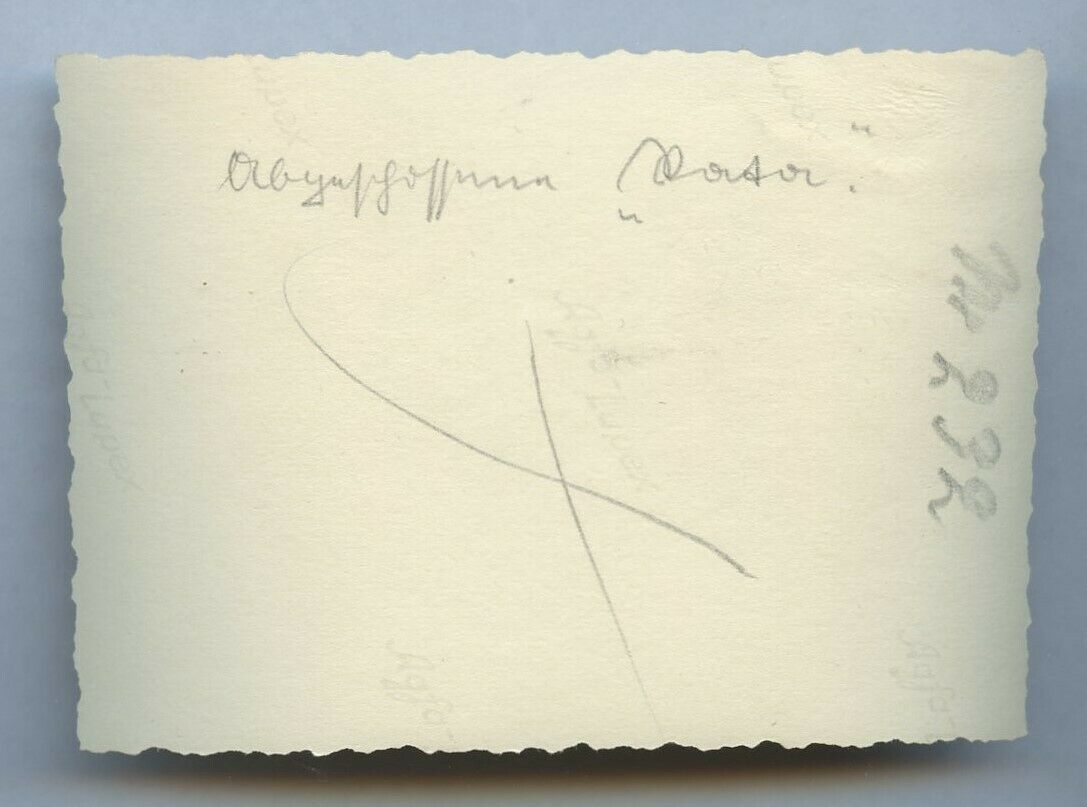 Abgeschossene „Rata“.
Nr 232
Agfa-Lupex
Agfa-Lupex
Agfa-
Agfa-